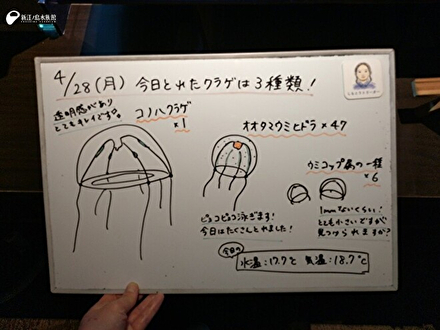 新江ノ島水族館
4/28(月) 今日とれたクラゲは3種類!
透明感があり
とてもキレイです。
コノハクラゲ
×1
オオタマウミヒドラ×47
ウミコップ属の一種
×6
ピョコピョコ泳ぎます!
今日はたくさんとれました!
1mmないくらい!
とても小さいですが
見つけられますか?
今日の
水温:17.7℃ 気温:18.7℃